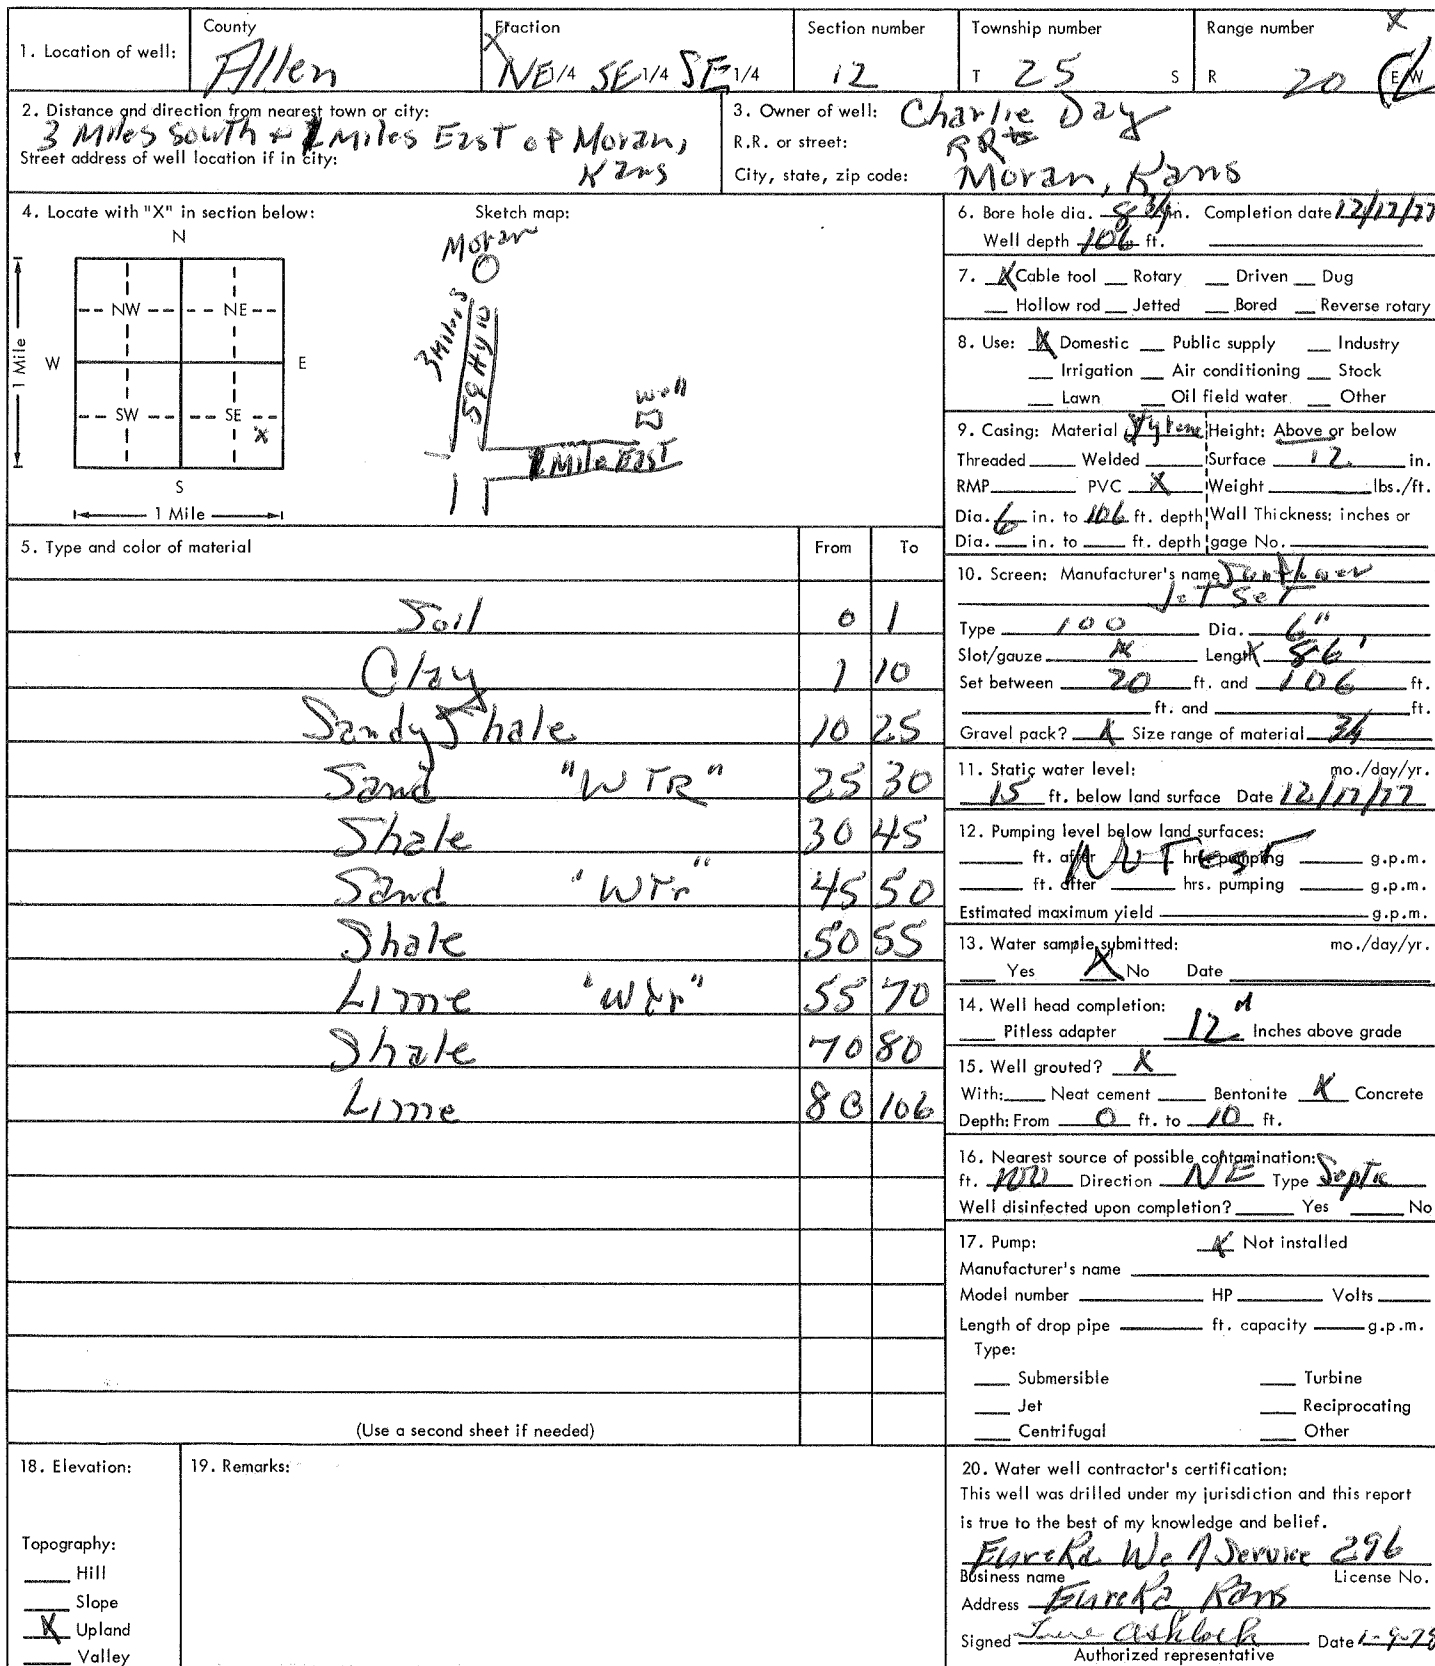 County Fraction Section number Township number Range number X
1. Location of well: Allen X NE 1/4 SE 1/4 SE 1/4 12 T 25 S R 20 E/W
2. Distance and direction from nearest town or city:
3 Miles South + 1 Miles East of Moran,
Street address of well location if in city: Kans
3. Owner of well: Charlie Day
R.R. or street: RR
City, state, zip code: Moran, Kans
4. Locate with "X" in section below: Sketch map:
N
NW NE
W E
SW SE
X
S
1 Mile
1 Mile
Moran
3 Miles S
59 Hyw
Well
1 Mile East
5. Type and color of material From To
Soil 0 1
Clay 1 10
Sandy Shale 10 25
Sand "WTR" 25 30
Shale 30 45
Sand "WTr" 45 50
Shale 50 55
Lime "Wtr" 55 70
Shale 70 80
Lime 80 106
(Use a second sheet if needed)
6. Bore hole dia. 8 3/4 in. Completion date 12/17/77
Well depth 106 ft.
7. X Cable tool Rotary Driven Dug
Hollow rod Jetted Bored Reverse rotary
8. Use: X Domestic Public supply Industry
Irrigation Air conditioning Stock
Lawn Oil field water Other
9. Casing: Material Styrene Height: Above or below
Threaded Welded Surface 12 in.
RMP PVC X Weight lbs./ft.
Dia. 6 in. to 106 ft. depth Wall Thickness: inches or
Dia. in. to ft. depth gage No.
10. Screen: Manufacturer's name Sunflower
Jet Set
Type 100 Dia. 6"
Slot/gauze X Length X 86'
Set between 20 ft. and 106 ft.
ft. and ft.
Gravel pack? X Size range of material 3/4
11. Static water level: mo./day/yr.
15 ft. below land surface Date 12/17/77
12. Pumping level below land surfaces:
ft. after hrs. pumping g.p.m.
No Test
ft. after hrs. pumping g.p.m.
Estimated maximum yield g.p.m.
13. Water sample submitted: mo./day/yr.
Yes X No Date
14. Well head completion:
Pitless adapter 12" Inches above grade
15. Well grouted? X
With: Neat cement Bentonite X Concrete
Depth: From 0 ft. to 10 ft.
16. Nearest source of possible contamination:
ft. 100 Direction NE Type Septic
Well disinfected upon completion? Yes No
17. Pump: X Not installed
Manufacturer's name
Model number HP Volts
Length of drop pipe ft. capacity g.p.m.
Type:
Submersible Turbine
Jet Reciprocating
Centrifugal Other
18. Elevation:
Topography:
Hill
Slope
X Upland
Valley
19. Remarks:
20. Water well contractor's certification:
This well was drilled under my jurisdiction and this report
is true to the best of my knowledge and belief.
Eureka Well Service 296
Business name License No.
Address Eureka Kans
Signed Ashlock Date 1-9-78
Authorized representative